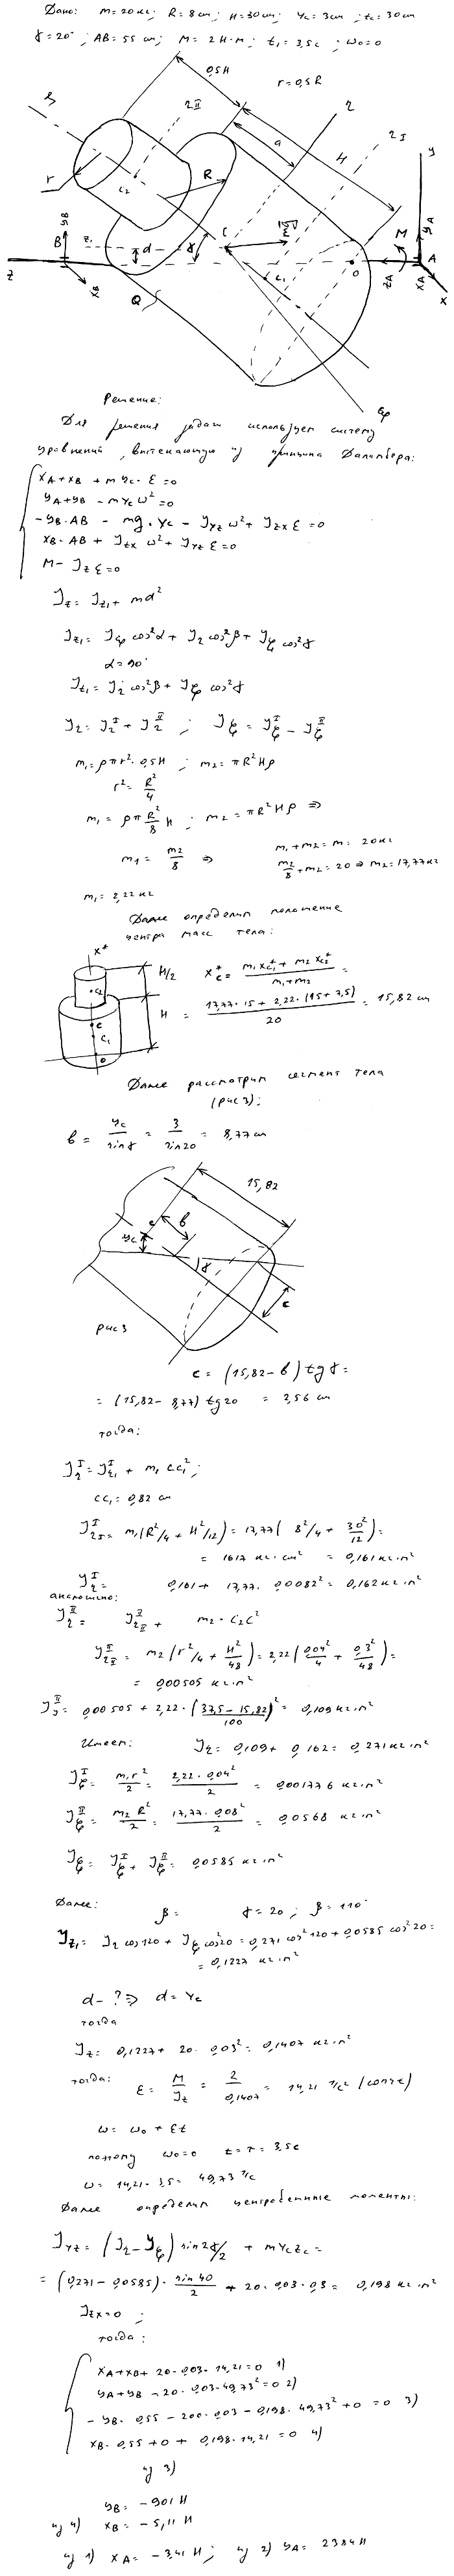 Дано: M=20кг; R=8cm; H=30cm; Yc=3cm; zc=30cm
γ=20°; AB=55 cm; M=2Н·м; t₁=3,5с; ω₀=0
0,5H
r=0,5R
ξ
2 II
2
2 I
a
H
y
r
C₂
R
B
yB
z₁
d
γ
C
M
YA
A
z
XB
Q
C₁
O
zA
XA
x
Решение:
Для решения задачи использует систему
уравнений, вытекающую из принципа Даламбера:
XA+XB + mYc·ε=0
YA+YB - mYcω²=0
-YB·AB - mg·Yc - Jyzω² + Jzxε=0
XB·AB + Jzxω² + Jyzε=0
M - Jzε=0
Jz = Jz₁ + md²
Jz₁ = Jφcos²α + J₂cos²β + Jξcos²γ
α=90°
Jz₁ = J₂cos²β + Jξcos²γ
J₂ = J₂ᴵ + J₂ᴵᴵ ; Jξ = Jξᴵ - Jξᴵᴵ
m₁=ρπr²·0,5H ; m₂=πR²Hρ
r² = R²/4
m₁ = ρπ R²/8 H ; m₂=πR²Hρ ⇒
m₁ = m₂/8 ⇒ m₁+m₂=m= 20кг
m₂/8+m₂=20 ⇒ m₂=17,77кг
m₁= 2,22кг
Далее определим положение
центра масс тела:
x*
H/2
H
C₂
C
C₁
O
Xc* = (m₁Xc₁* + m₂Xc₂*)/(m₁+m₂) =
= (17,77·15 + 2,22·(15+7,5))/20 = 15,82 cm
Далее рассмотрим сегмент тела
(рис3):
b = Yc/sinγ = 3/sin20 = 8,77cm
15,82
c
b
Yc
γ
c
рис3
c = (15,82-b)tgγ=
= (15,82- 8,77) tg20 = 2,56 cm
тогда:
J₂ᴵ = J₂₁ᴵ + m₁CC₁² ;
CC₁= 0,82 cm
J₂ᴵ = m₁(R²/4 + H²/12) = 17,77(8²/4 + 30²/12)=
= 1617 кг·cm² = 0,161кг·м²
J₂ᴵ = 0,161+ 17,77· 0,0082² = 0,162кг·м²
аналогично:
J₂ᴵᴵ = J₂ᴵᴵ + m₂·C₂C²
J₂ᴵᴵ = m₂(r²/4 + H²/48) = 2,22(0,04²/4 + 0,3²/48)=
= 0,00505 кг·м²
J₂ᴵᴵ = 0,00505 + 2,22·((37,5-15,82)/100)² = 0,109кг·м²
Имеем: J₂ = 0,109 + 0,162 = 0,271кг·м²
Jξᴵ = m₁r²/2 = 2,22·0,04²/2 = 0,001776 кг·м²
Jξᴵᴵ = m₂R²/2 = 17,77·0,08²/2 = 0,0568 кг·м²
Jξ = Jξᴵ + Jξᴵᴵ = 0,0585кг·м²
Далее: β= γ=20 ; β=110°
Jz₁ = J₂cos120 + Jξcos²20 = 0,271cos²120+0,0585cos²20=
= 0,1227 кг·м²
d-? ⇒ d=Yc
тогда
Jz = 0,1227+ 20·0,03² = 0,1407 кг·м²
тогда: ε = M/Jz = 2/0,1407 = 14,21 1/с² (const)
ω = ω₀ + εt
поэтому ω₀=0 t=τ= 3,5с
ω = 14,21·3,5= 49,73 1/с
Далее определим центробежные моменты:
Jyz = (J₂-Jξ)sin2γ/2 + mYcZc=
= (0,271-0,0585)·sin40/2 + 20·0,03·0,3= 0,198 кг·м²
Jzx=0 ;
тогда:
XA+XB+ 20·0,03·14,21=0 1)
YA+YB -20·0,03·49,73²=0 2)
-YB·0,55 - 200·0,03 - 0,198·49,73²+0 =0 3)
XB·0,55+0 + 0,198·14,21=0 4)
из 3)
YB = -901 Н
из 4) XB = -5,11 Н
из 1) XA= -3,41 Н ; из 2) YA= 2384Н